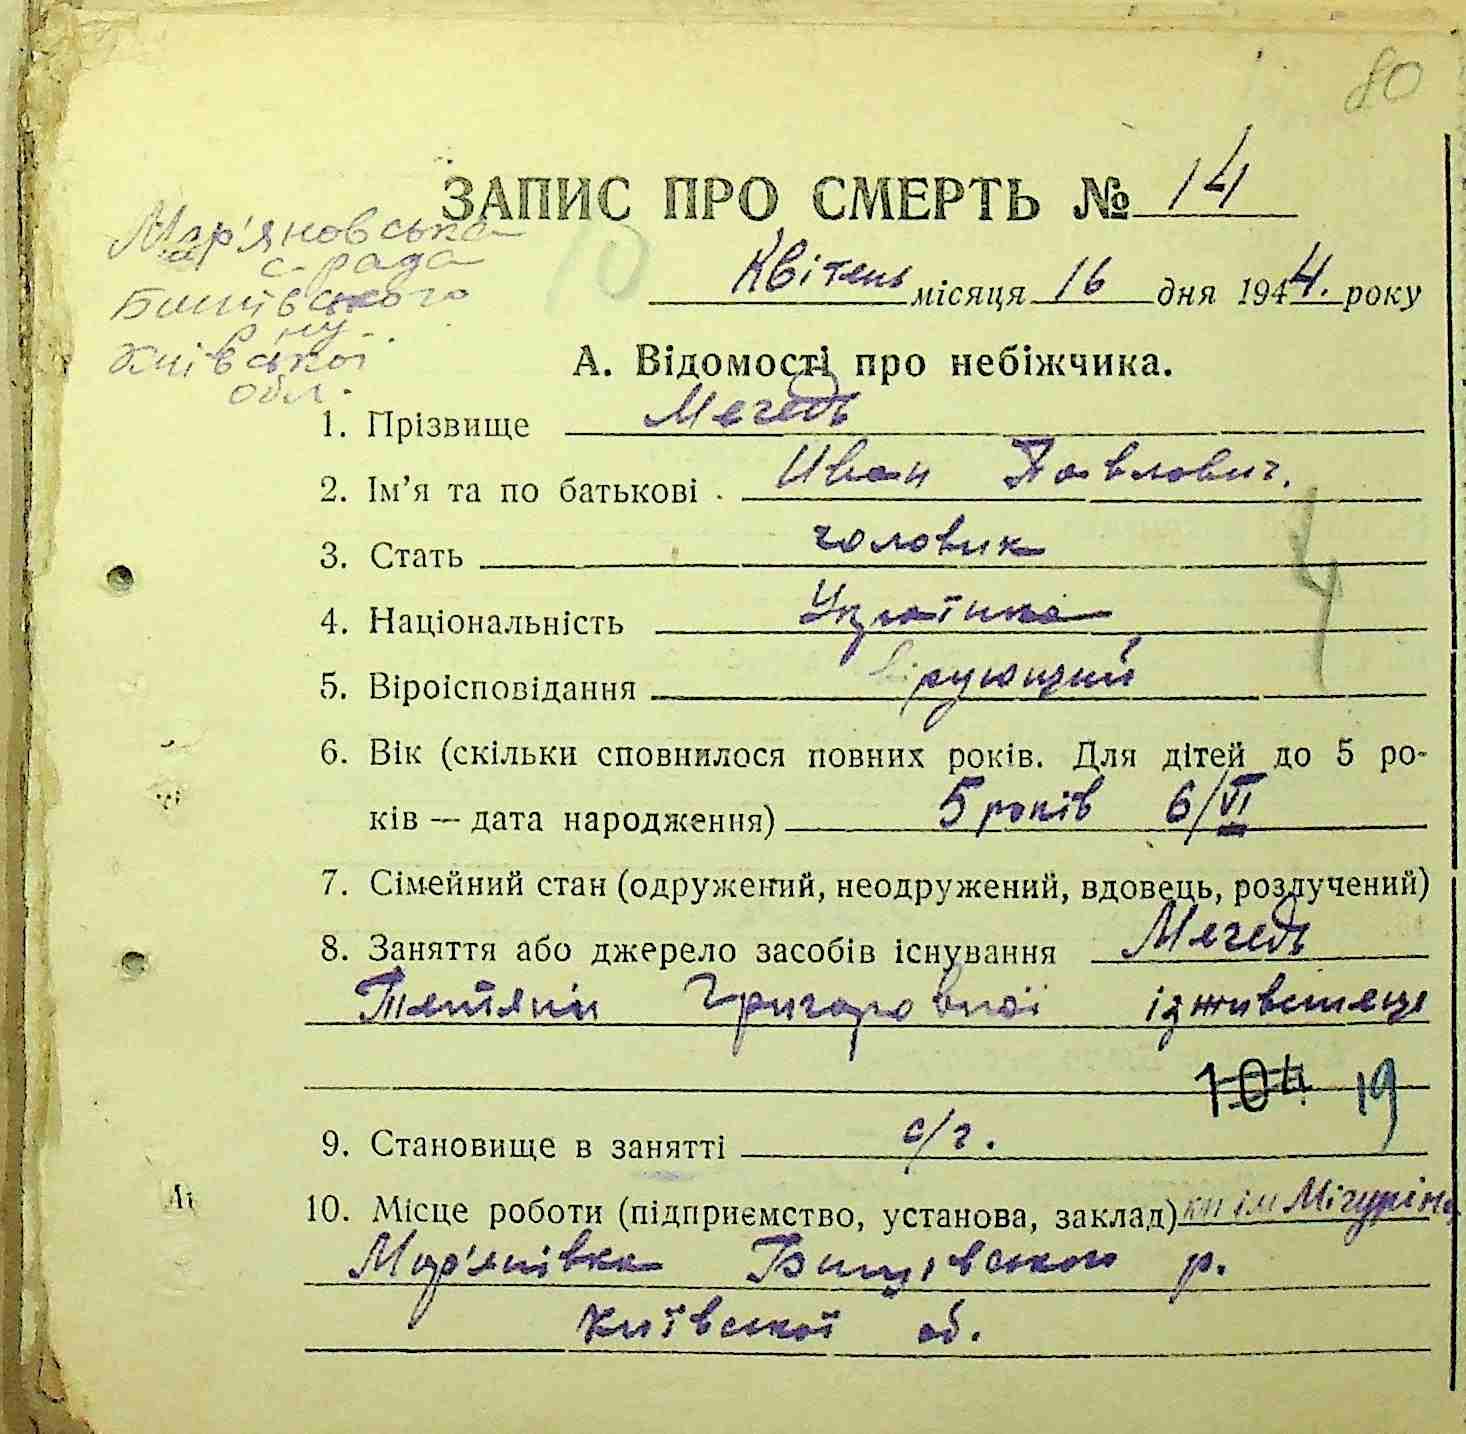 80
ЗАПИС ПРО СМЕРТЬ № 14
Мар'яновська
с-рада
Бишівського
р-ну.
Київської
обл.
Квітень місяця 16 дня 1944. року
А. Відомості про небіжчика.
1. Прізвище Мегедь
2. Ім'я та по батькові Иван Павлович.
3. Стать чоловик
4. Національність Украінка
5. Віроісповідання віруюущий
6. Вік (скільки сповнилося повних років. Для дітей до 5 ро-
ків — дата народження) 5 років 6/VI
7. Сімейний стан (одружений, неодружений, вдовець, розлучений)
8. Заняття або джерело засобів існування Мегедь
Тетяни Григоровної
104 19
9. Становище в занятті с/г.
10. Місце роботи (підприємство, установа, заклад) кп ім Мічуріна
Мар'янівка Бишівського р.
Київскої об.